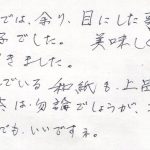 では、余り、目にした事
子でした。 美味しく
きました。
でいる 和紙も、上品
は、勿論でしょうが、
でも、いいですネ。